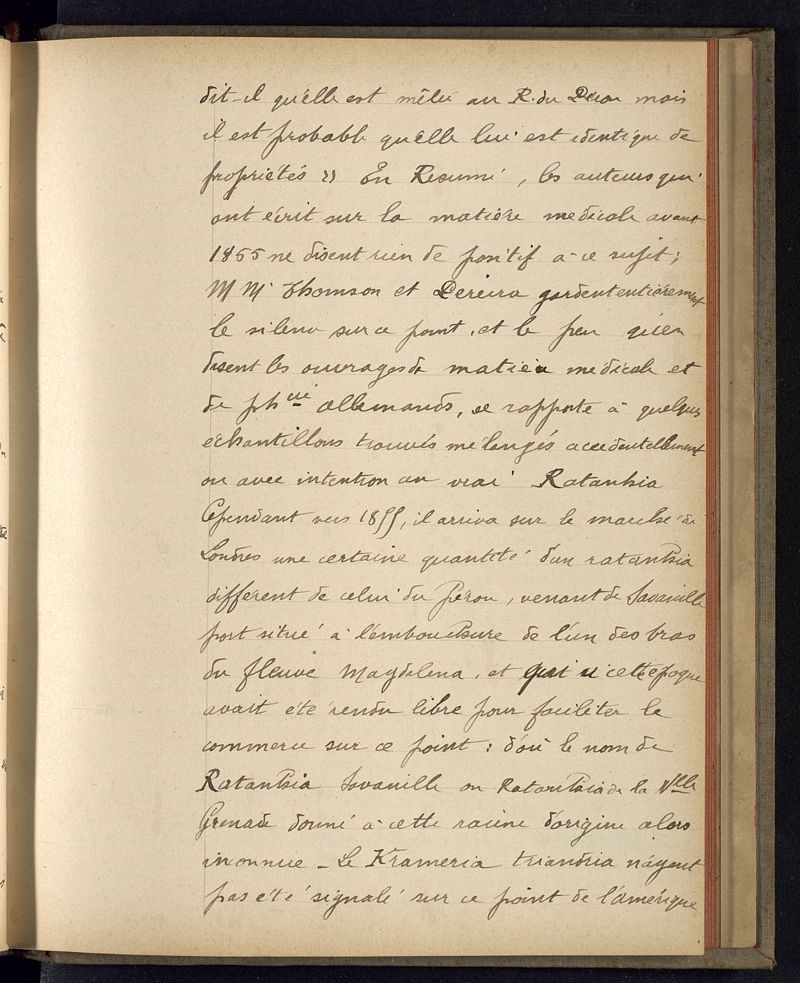 dit-il qu'elle est mêlée au R. du Pérou mais
il est probable qu'elle lui est identique de
propriétés » En Résumé, les auteurs qui
ont écrit sur la matière médicale avant
1855 ne disent rien de positif à ce sujet ;
M M. Thomson et Pereira gardent entièrement
le silence sur ce point, et le peu qu'en
disent les ouvrages de matière médicale et
de phcie allemands, se rapporte à quelques
échantillons trouvés mélangés accidentellement
ou avec intention au vrai Ratanhia
Cependant vers 1855, il arriva sur le marché de
Londres une certaine quantité d'un ratanhia
différent de celui du Pérou, venant de Savanille
port situé à l'embouchure de l'un des bras
du fleuve Magdelena, et qui à cette époque
avait été rendu libre pour faciliter le
commerce sur ce point : d'où le nom de
Ratanhia Savanille ou Ratanhia de la Nlle
Grenade donné à cette racine d'origine alors
inconnue _ Le Krameria triandria n'ayant
pas été signalé sur ce point de l'Amérique